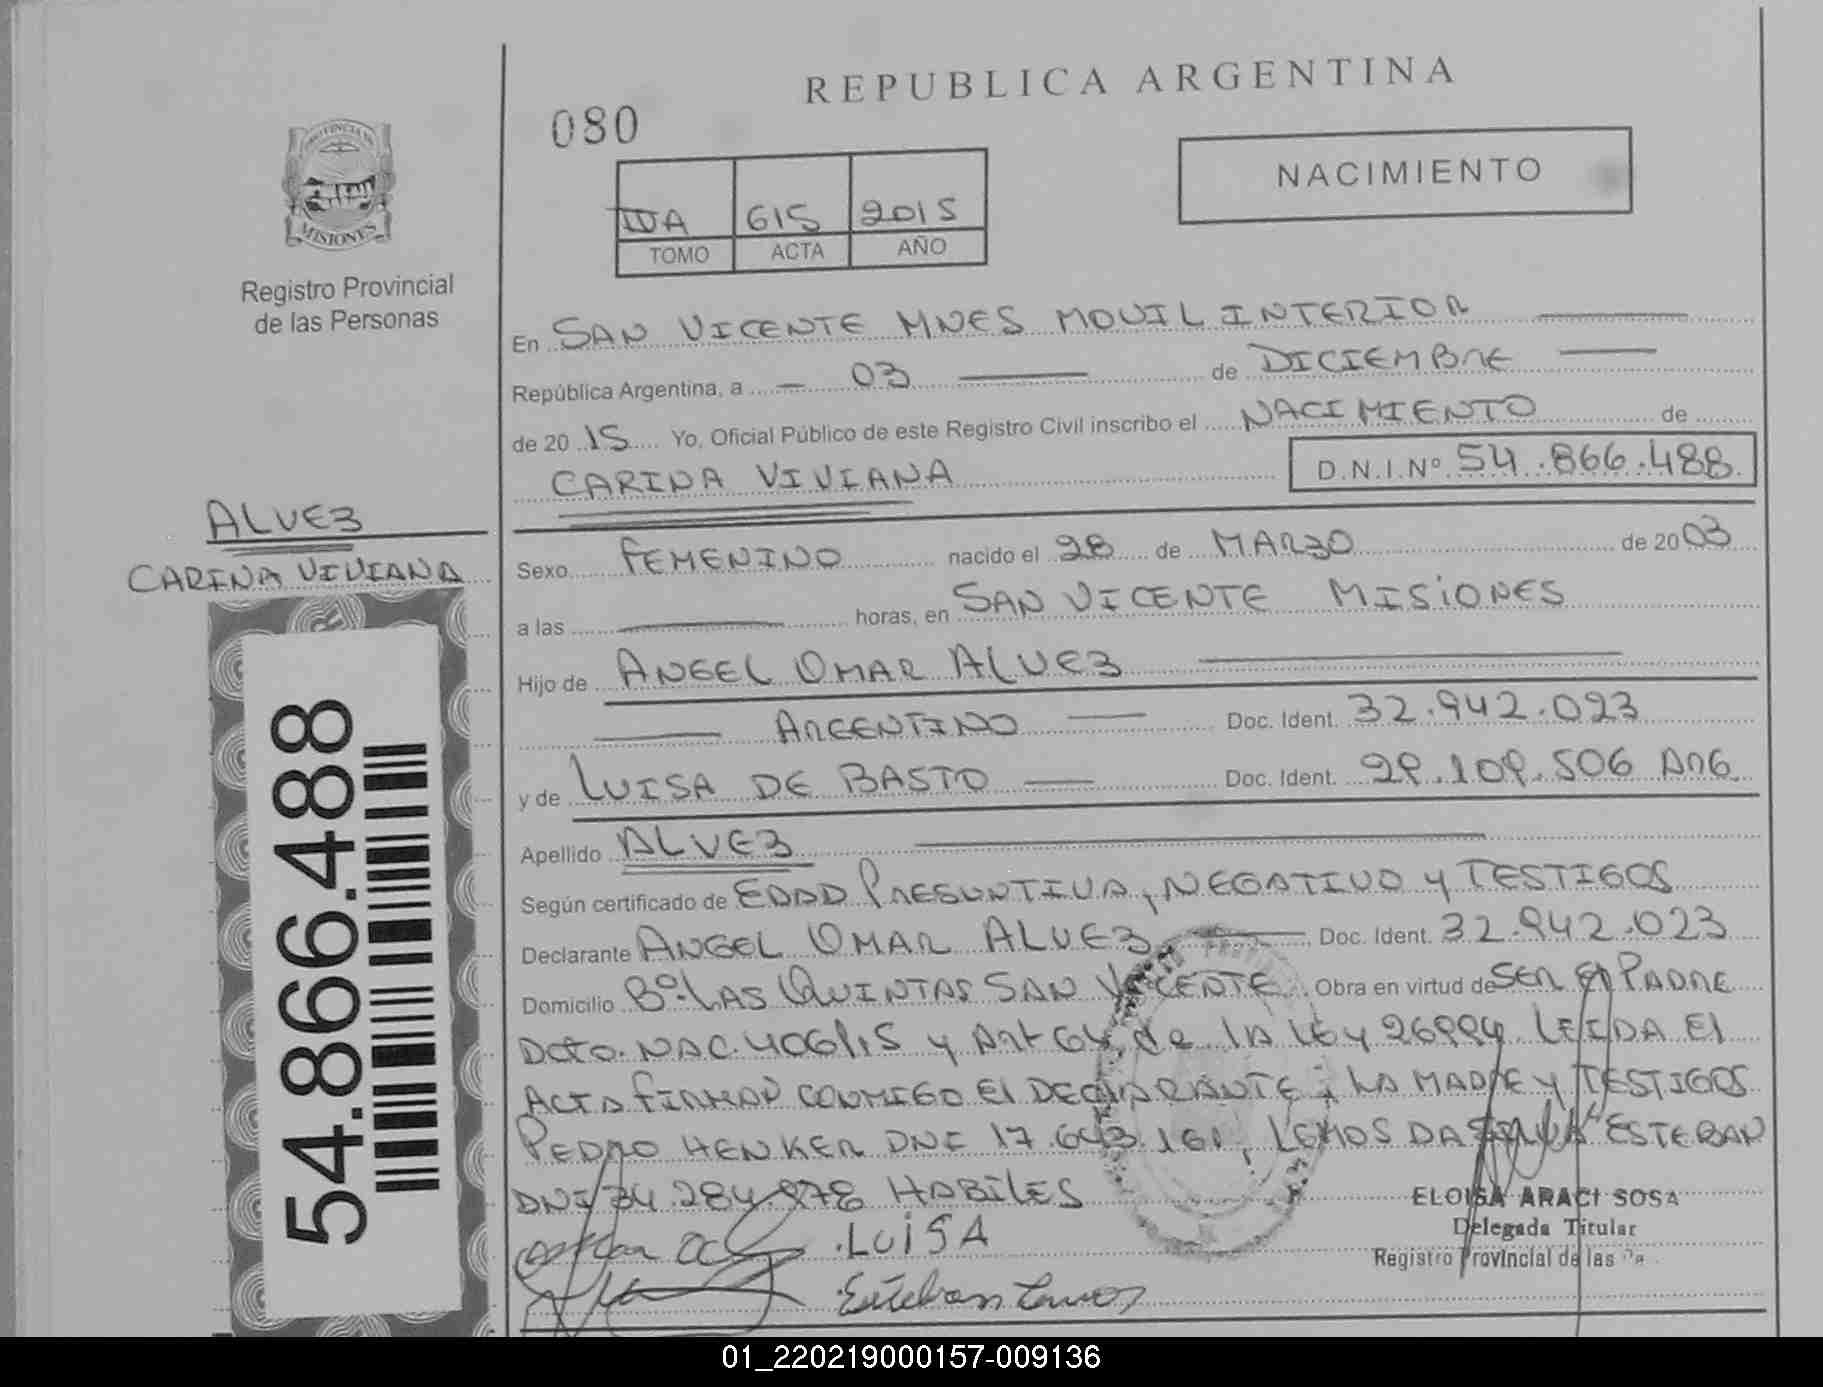 REPUBLICA ARGENTINA
080
NACIMIENTO
IVA 615 2015
TOMO ACTA AÑO
PROVINCIA DE
MISIONES
Registro Provincial
de las Personas
En SAN VICENTE MNES MOVIL INTERIOR
República Argentina, a 03 de DICIEMBRE
de 20 15 Yo, Oficial Público de este Registro Civil inscribo el NACIMIENTO de
CARINA VIVIANA D.N.I.Nº 54.866.488
ALVEZ
CARINA VIVIANA
54.866.488
Sexo FEMENINO nacido el 28 de MARZO de 2003
a las horas, en SAN VICENTE MISIONES
Hijo de ANGEL OMAR ALVEZ
ARGENTINO Doc. Ident. 32.942.023
y de LUISA DE BASTO Doc. Ident. 29.109.506 ARG
Apellido ALVEZ
Según certificado de EDAD PRESUNTIVA, NEGATIVO y TESTIGOS
Declarante ANGEL OMAR ALVEZ Doc. Ident. 32.942.023
Domicilio Bº LAS QUINTAS SAN VICENTE Obra en virtud de SER El PADRE
Dcto. NAC. 406/15 y Art 64 de lA lEy 26994 LEIDA El
ACTA FIRMAN CONMIGO El DEClARANTE; LA MADRE y TESTIGOS
PEDRO HENKER DNI 17.643.161, LEMOS DA SILVA ESTEBAN
DNI 34.284.978 HABILES
ELOISA ARACI SOSA
Delegada Titular
Registro Provincial de las Pe
.LUISA
Esteban Lemos
01_220219000157-009136